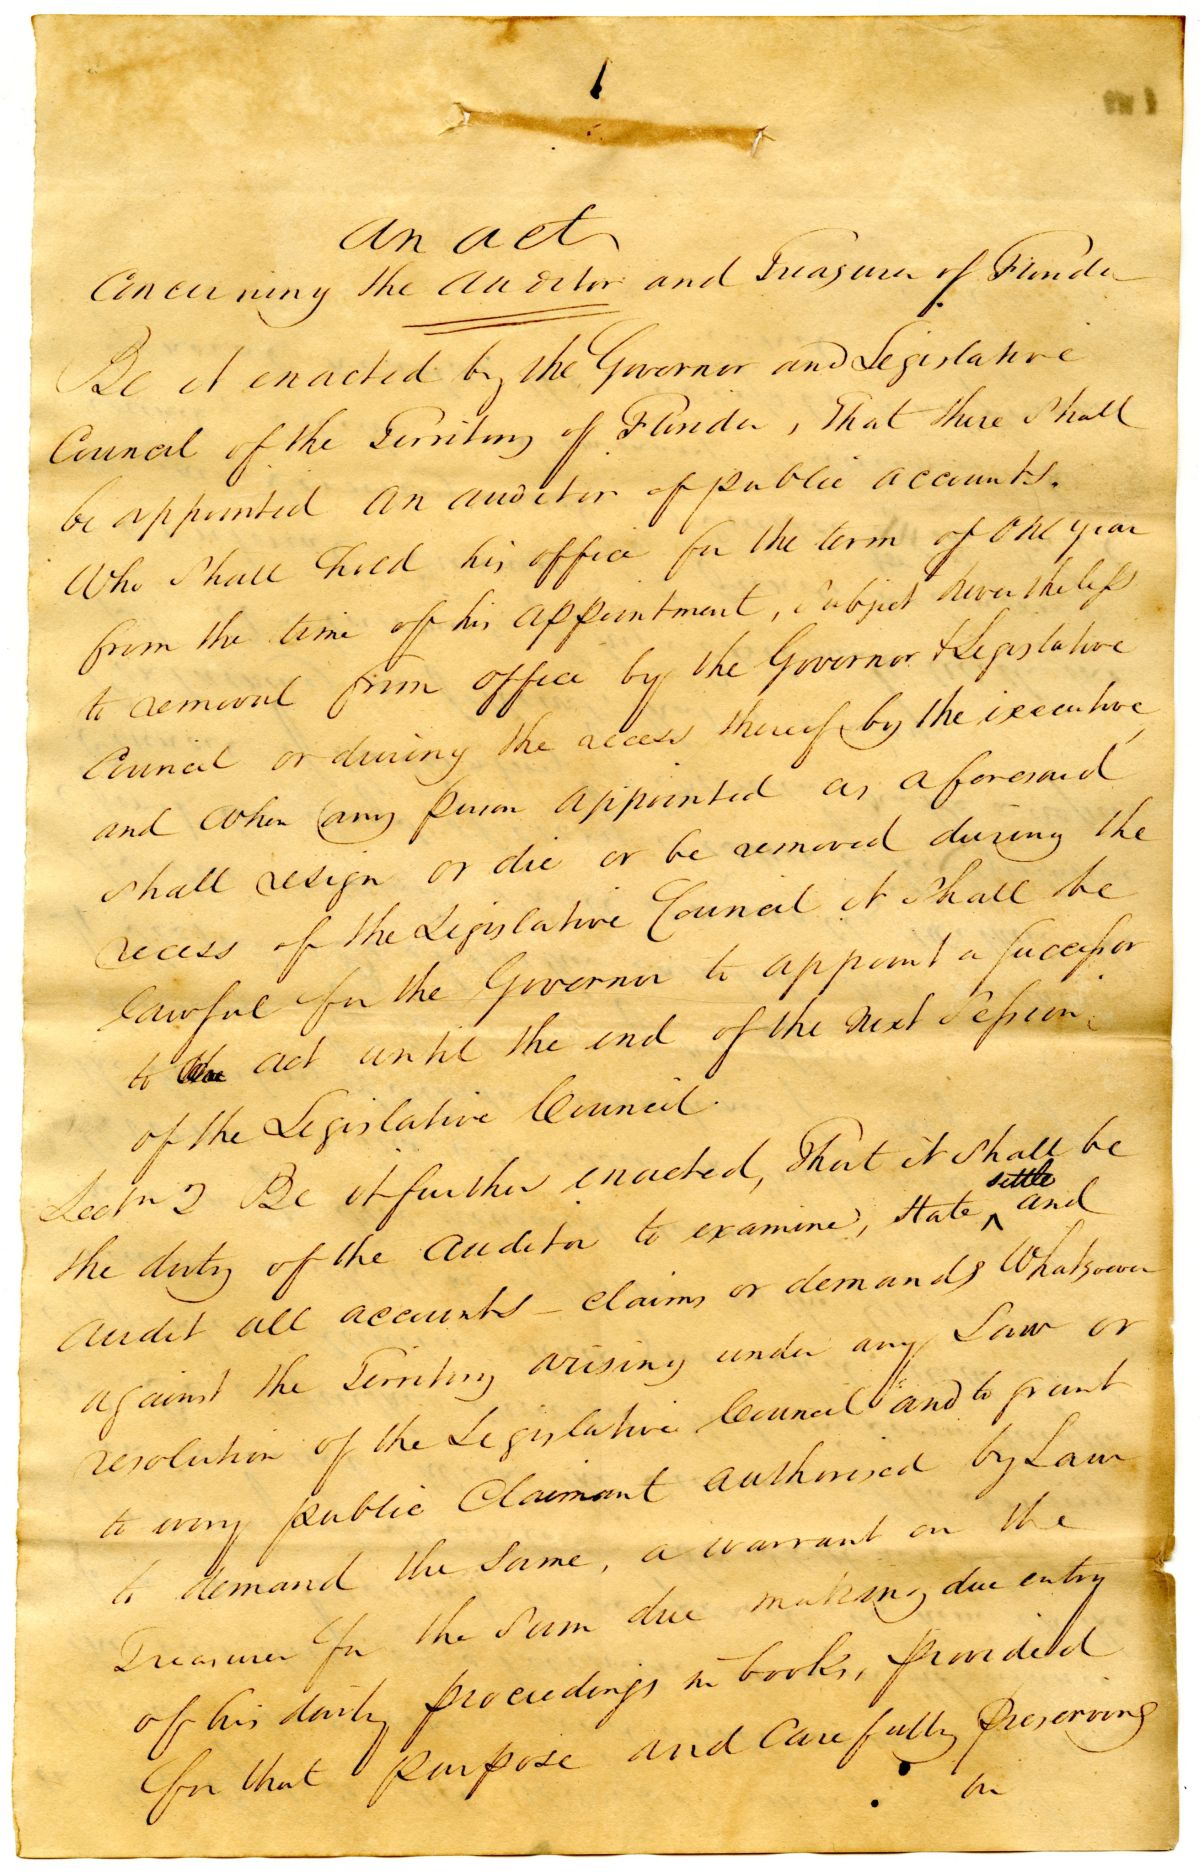 An act
Concerning the Auditor and Treasurer of Florida
Be it enacted by the Governor and Legislative
Council of the Territory of Florida, That there shall
be appointed an auditor of public accounts.
Who shall hold his office for the term of one year
from the time of his appointment, subject nevertheless
to removal from office by the Governor & Legislative
Council or during the recess thereof by the executive,
and when any person appointed as aforesaid
shall resign or die or be removed during the
recess of the Legislative Council it shall be
lawful for the Governor to appoint a successor
to act until the end of the next session
of the Legislative Council.
Sectn 2 Be it further enacted, That it shall be
the duty of the Auditor to examine, state, settle and
audit all accounts - claims or demands Whatsoever
against the Territory arising under any Law or
resolution of the Legislative Council and to grant
to every public Claimant authorised by Law
to demand the same, a warrant on the
Treasurer for the sum due making due entry
of his daily proceedings in books, provided
for that purpose and carefully preserving